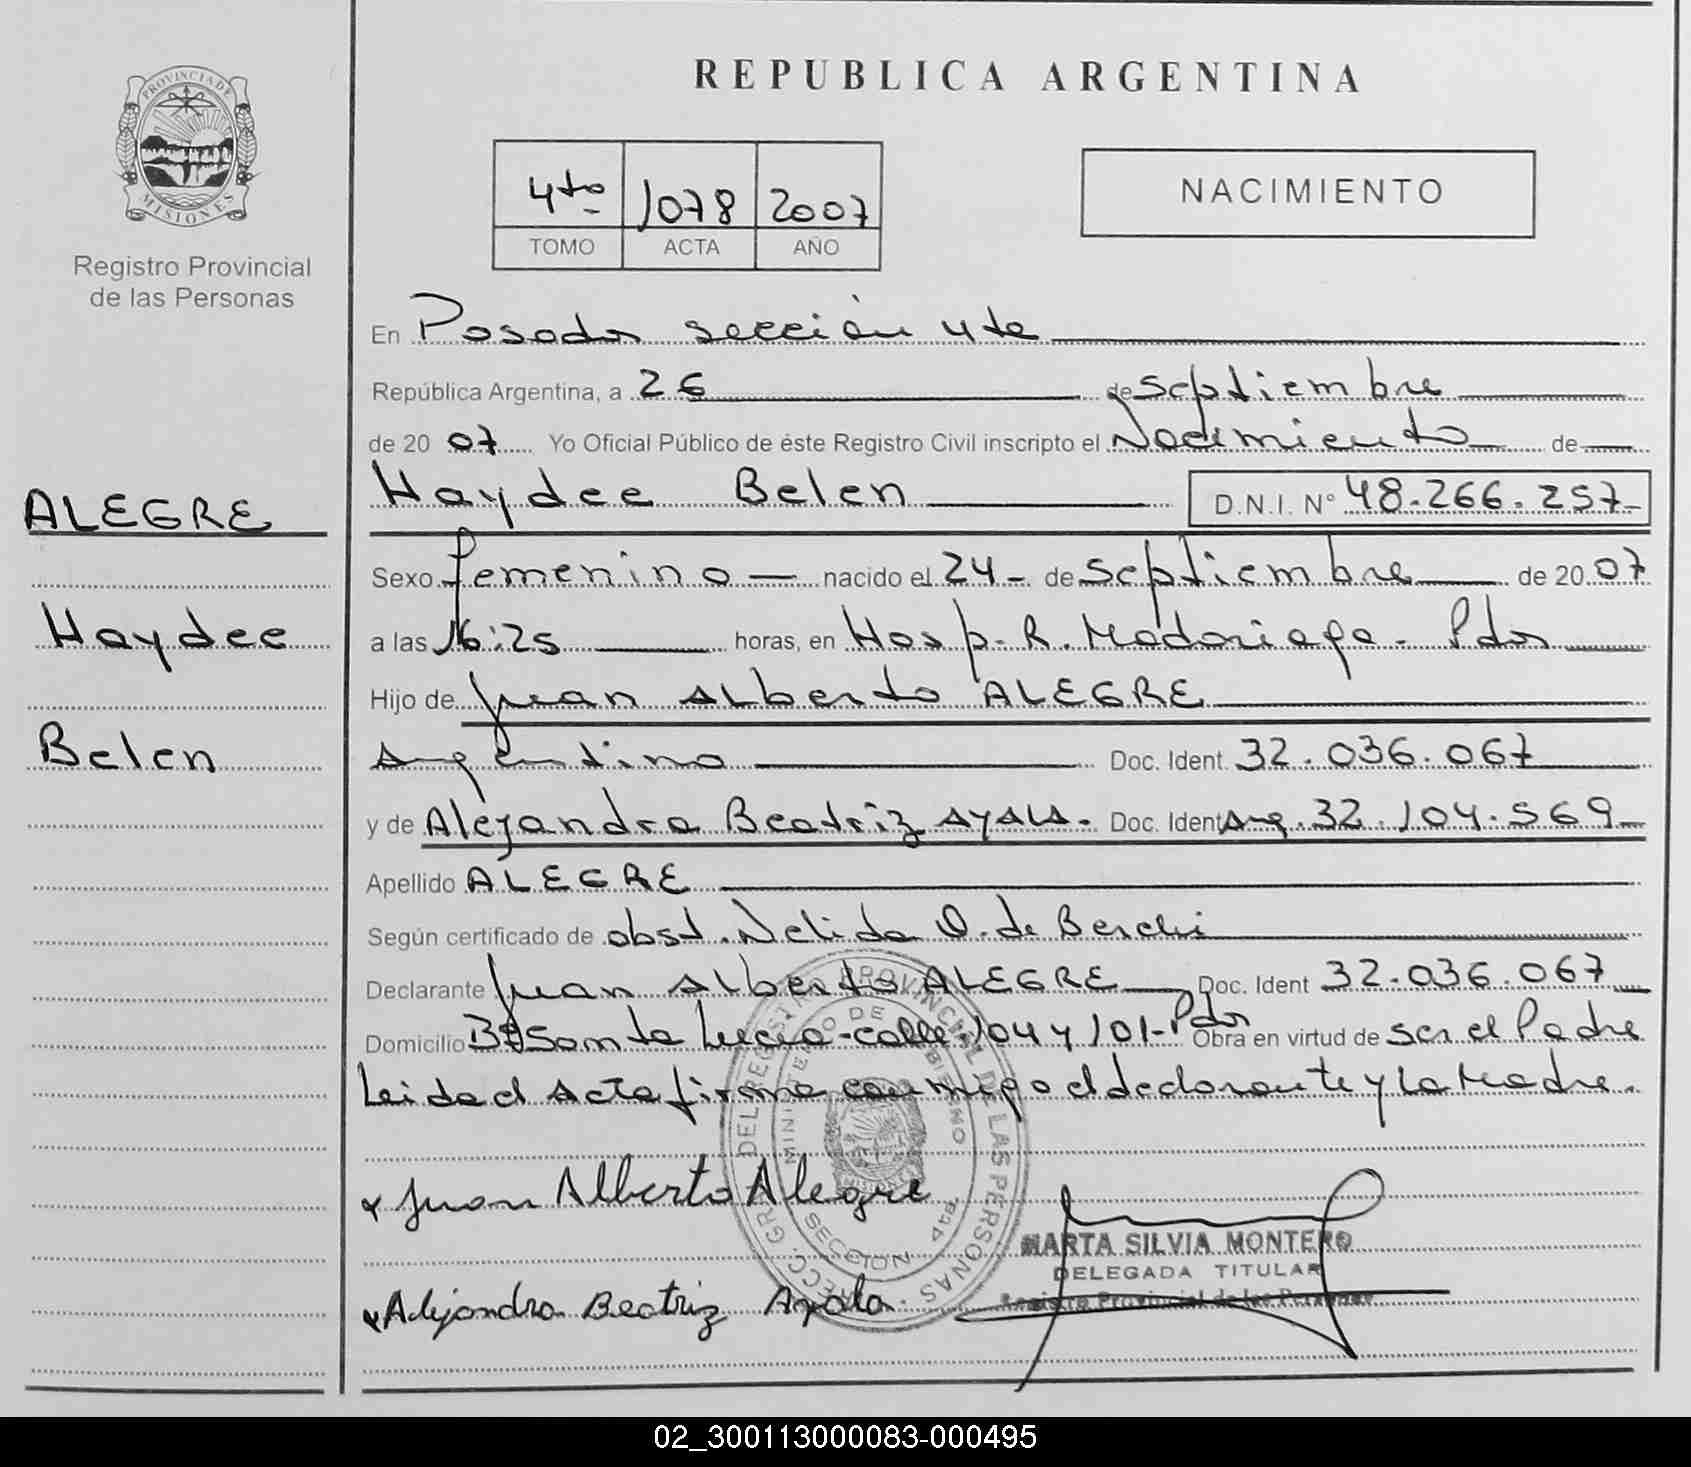 PROVINCIA DE
MISIONES
Registro Provincial
de las Personas
ALEGRE
Haydee
Belen
REPUBLICA ARGENTINA
4to 1078 2007
TOMO ACTA AÑO
NACIMIENTO
En Posadas sección 4ta
República Argentina, a 26 de septiembre
de 20 07 Yo Oficial Público de éste Registro Civil inscripto el Nacimiento de
Haydee Belen D.N.I. N° 48.266.257-
Sexo femenino - nacido el 24 - de septiembre de 20 07
a las 16:25 horas, en Hosp. R. Madariaga - Pdas
Hijo de Juan Alberto ALEGRE
Argentino Doc. Ident. 32.036.067
y de Alejandra Beatriz AYALA. Doc. Ident Arg. 32.104.569-
Apellido ALEGRE
Según certificado de obst. Nelida O. de Berchi
Declarante Juan Alberto ALEGRE Doc. Ident 32.036.067
Domicilio Bº Santa Lucia - calle 104 y 101 - Pdas Obra en virtud de ser el Padre
Leida el Acta firma conmigo el declarante y la Madre.
DIRECC. GRAL. DEL REGISTRO PROVINCIAL DE LAS PERSONAS
MINISTERIO DE GOBIERNO
MISIONES
SECCION 4ta.
Juan Alberto Alegre
MARTA SILVIA MONTERO
DELEGADA TITULAR
Registro Provincial de las Personas
Alejandra Beatriz Ayala
02_300113000083-000495